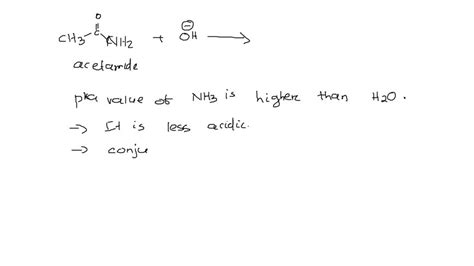 O
CH3 - C - NH2 + OH⊖ →
acetamide
pka value of NH3 is higher than H2O.
→ It is less acidic.
→ conju